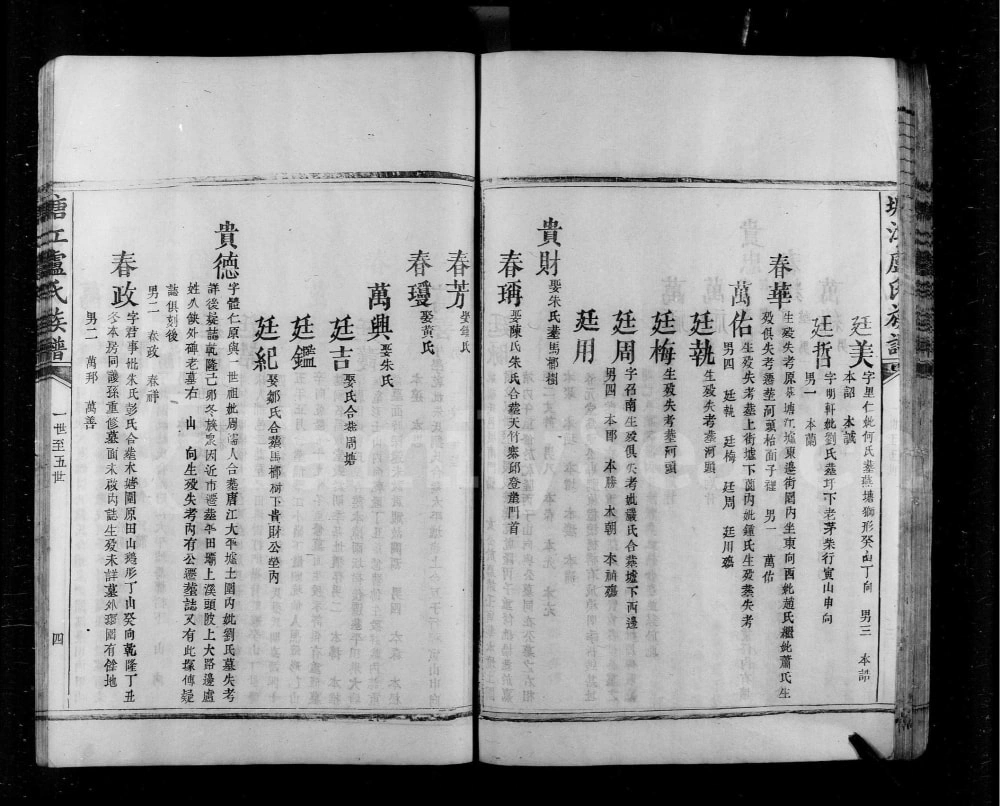 廷美 字里仁妣何氏墓蕪塘獅形癸山丁向 男三 本誥
本詔 本誠
廷哲 字明軒妣劉氏墓圩下老茅柴行寅山申向
男一 本蘭
春華 生歿失考原葬塘江墟東邊街閣內坐東向酉妣趙氏繼妣蕭氏生
歿俱失考遷葬河頭枱面子裡 男一 萬佑
萬佑 生歿失考墓上街墟下園內妣鍾氏生歿葬失考
男四 廷執 廷梅 廷周 廷用
廷執 生歿失考葬河頭
廷梅 生歿失考葬河頭
廷周 字召南生歿俱失考妣嚴氏合葬墟下西邊
男四 本郎 本勝 本朝 本
廷用
貴財 娶朱氏墓馬榔樹
春瑀 娶陳氏朱氏合葬天竹寨邱登壟門首
春芳 娶鍾氏
春璦 娶黃氏
萬興 娶朱氏
廷吉 娶氏合葬周塘
廷鑑
廷紀 娶鄒氏合葬馬榔树下貴財公塋內
貴德 字體仁原與一世祖妣周孺人合墓唐江大平墟土圍內妣劉氏墓失考
詳後墓誌乾隆己卯冬族眾因近市遷葬平田壩上溪頭陂上大路邊處
姓人缺外碑老墓右 山 向生歿失考內有公遷葬誌又有此塚傳疑
誌俱刻後
男二 春政 春祥
春政 字君事妣朱氏彭氏合墓木塘圍原田山鵝形丁山癸向乾隆丁丑
冬本房同議孫重修墓面未啟內誌生歿未詳墓外圍有餘地
男二 萬邦 萬善
塘江盧氏族譜
一世至五世
四